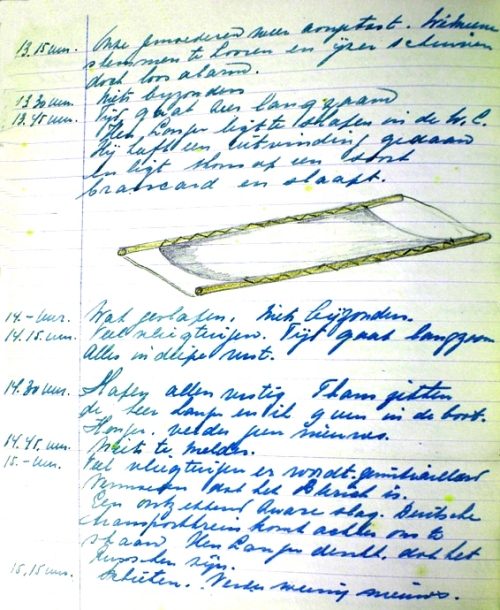 13.15 uur. Onze gemoederen weer aangetast.
stemmen te hooren en ijzer schuiven
doch loos alarm.
13.30 uur. Niets byzonders
13.45 uur. Tijd gaat zeer langzaam
Hen Langer ligt te slapen in de W.C.
Hij heeft een uitvinding gedaan
en ligt thans op een soort
brancard en slaapt.
14.- uur. Wat geslapen. Niets bijzonders.
14.15 uur. Veel vliegtuigen. Tijd gaat langzaam
Alles in diepe rust.
14.30 uur. Slapen allen rustig. Thans zitten
de Langer en ik in de boot.
Honger. verder geen nieuws.
14.45 uur. Niets te melden.
15.- uur. Veel vliegtuigen er wordt gemitrailleerd
Vermoeden dat het is.
Een ontzettend zware slag. Duitsche
transporttrein komt achter ons te
staan. Hen Langer denkt dat het
Russchen zijn.
15.15 uur. Schieten. Verder weinig nieuws.